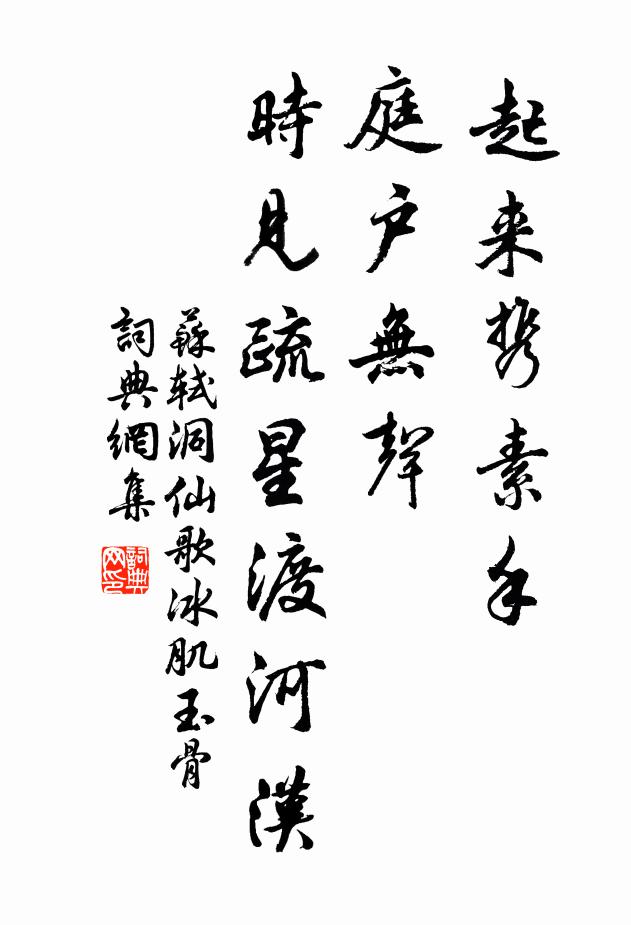 起来携素手
庭户無聲
時見疏星渡河漢
蘇軾洞仙歌冰肌玉骨
詞典網集
詞典网印